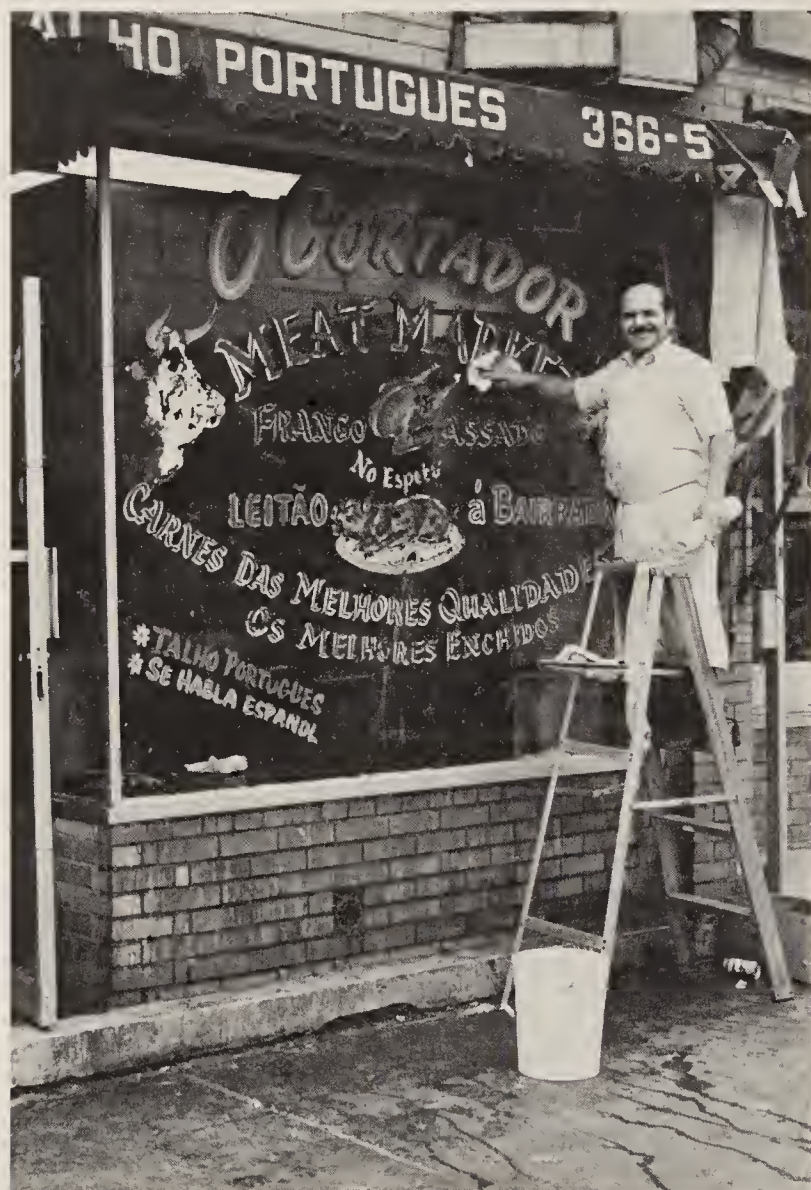 HO PORTUGUES 366-5
O CORTADOR
MEAT MARKE
FRANGO ASSADO
No Espeto
LEITÃO á BAIRRADA
CARNES DAS MELHORES QUALIDADE
OS MELHORES ENCHIDOS
* TALHO PORTUGUES
* SE HABLA ESPANOL